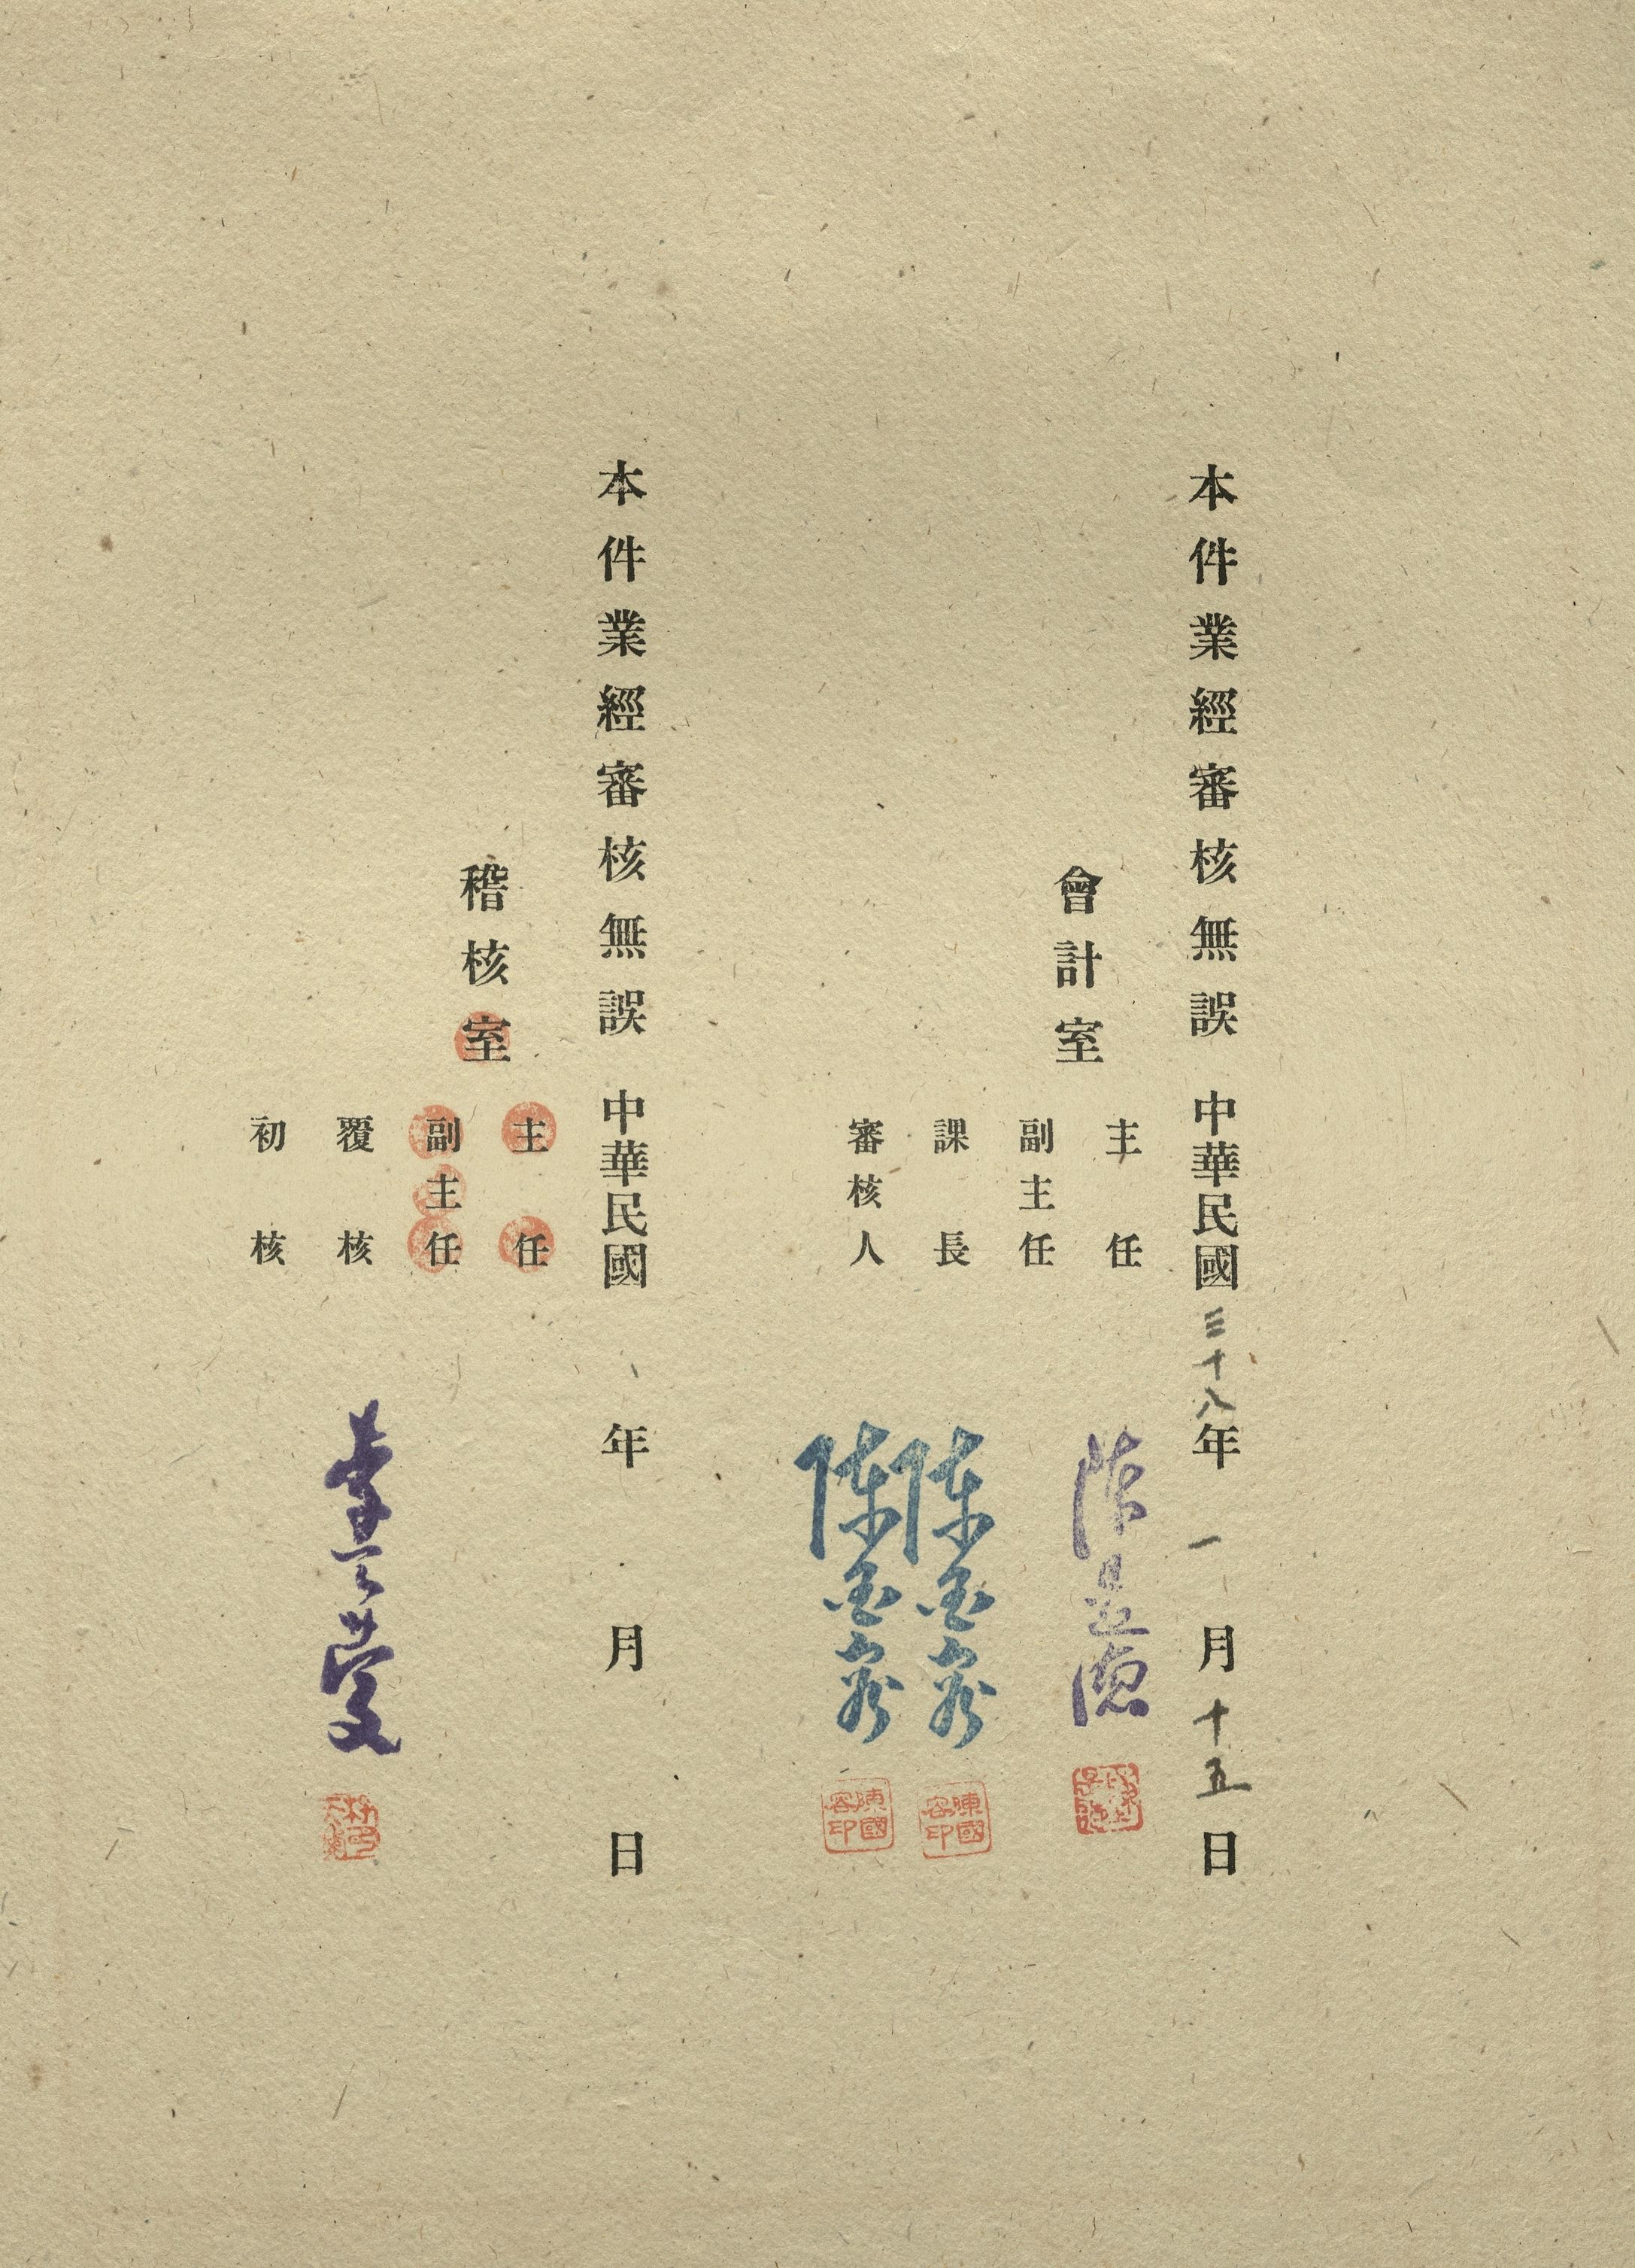 本件業經審核無誤 中華民國三十八年一月十五日
會計室
主任
副主任
課長 陳國容
陳國容印
審核人 陳國容
陳國容印
本件業經審核無誤 中華民國 年 月 日
稽核室
主任
副主任
覆核
初核